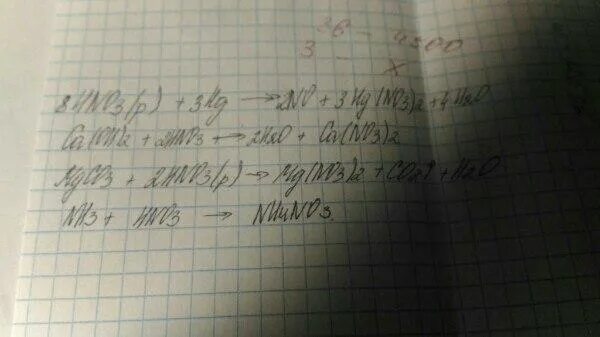 36 - 4500
3 - x
8HNO3(p) + 3Hg → 2NO + 3Hg(NO3)2 + 4H2O
Ca(OH)2 + 2HNO3 → 2H2O + Ca(NO3)2
MgCO3 + 2HNO3(p) → Mg(NO3)2 + CO2↑ + H2O
NH3 + HNO3 → NH4NO3.